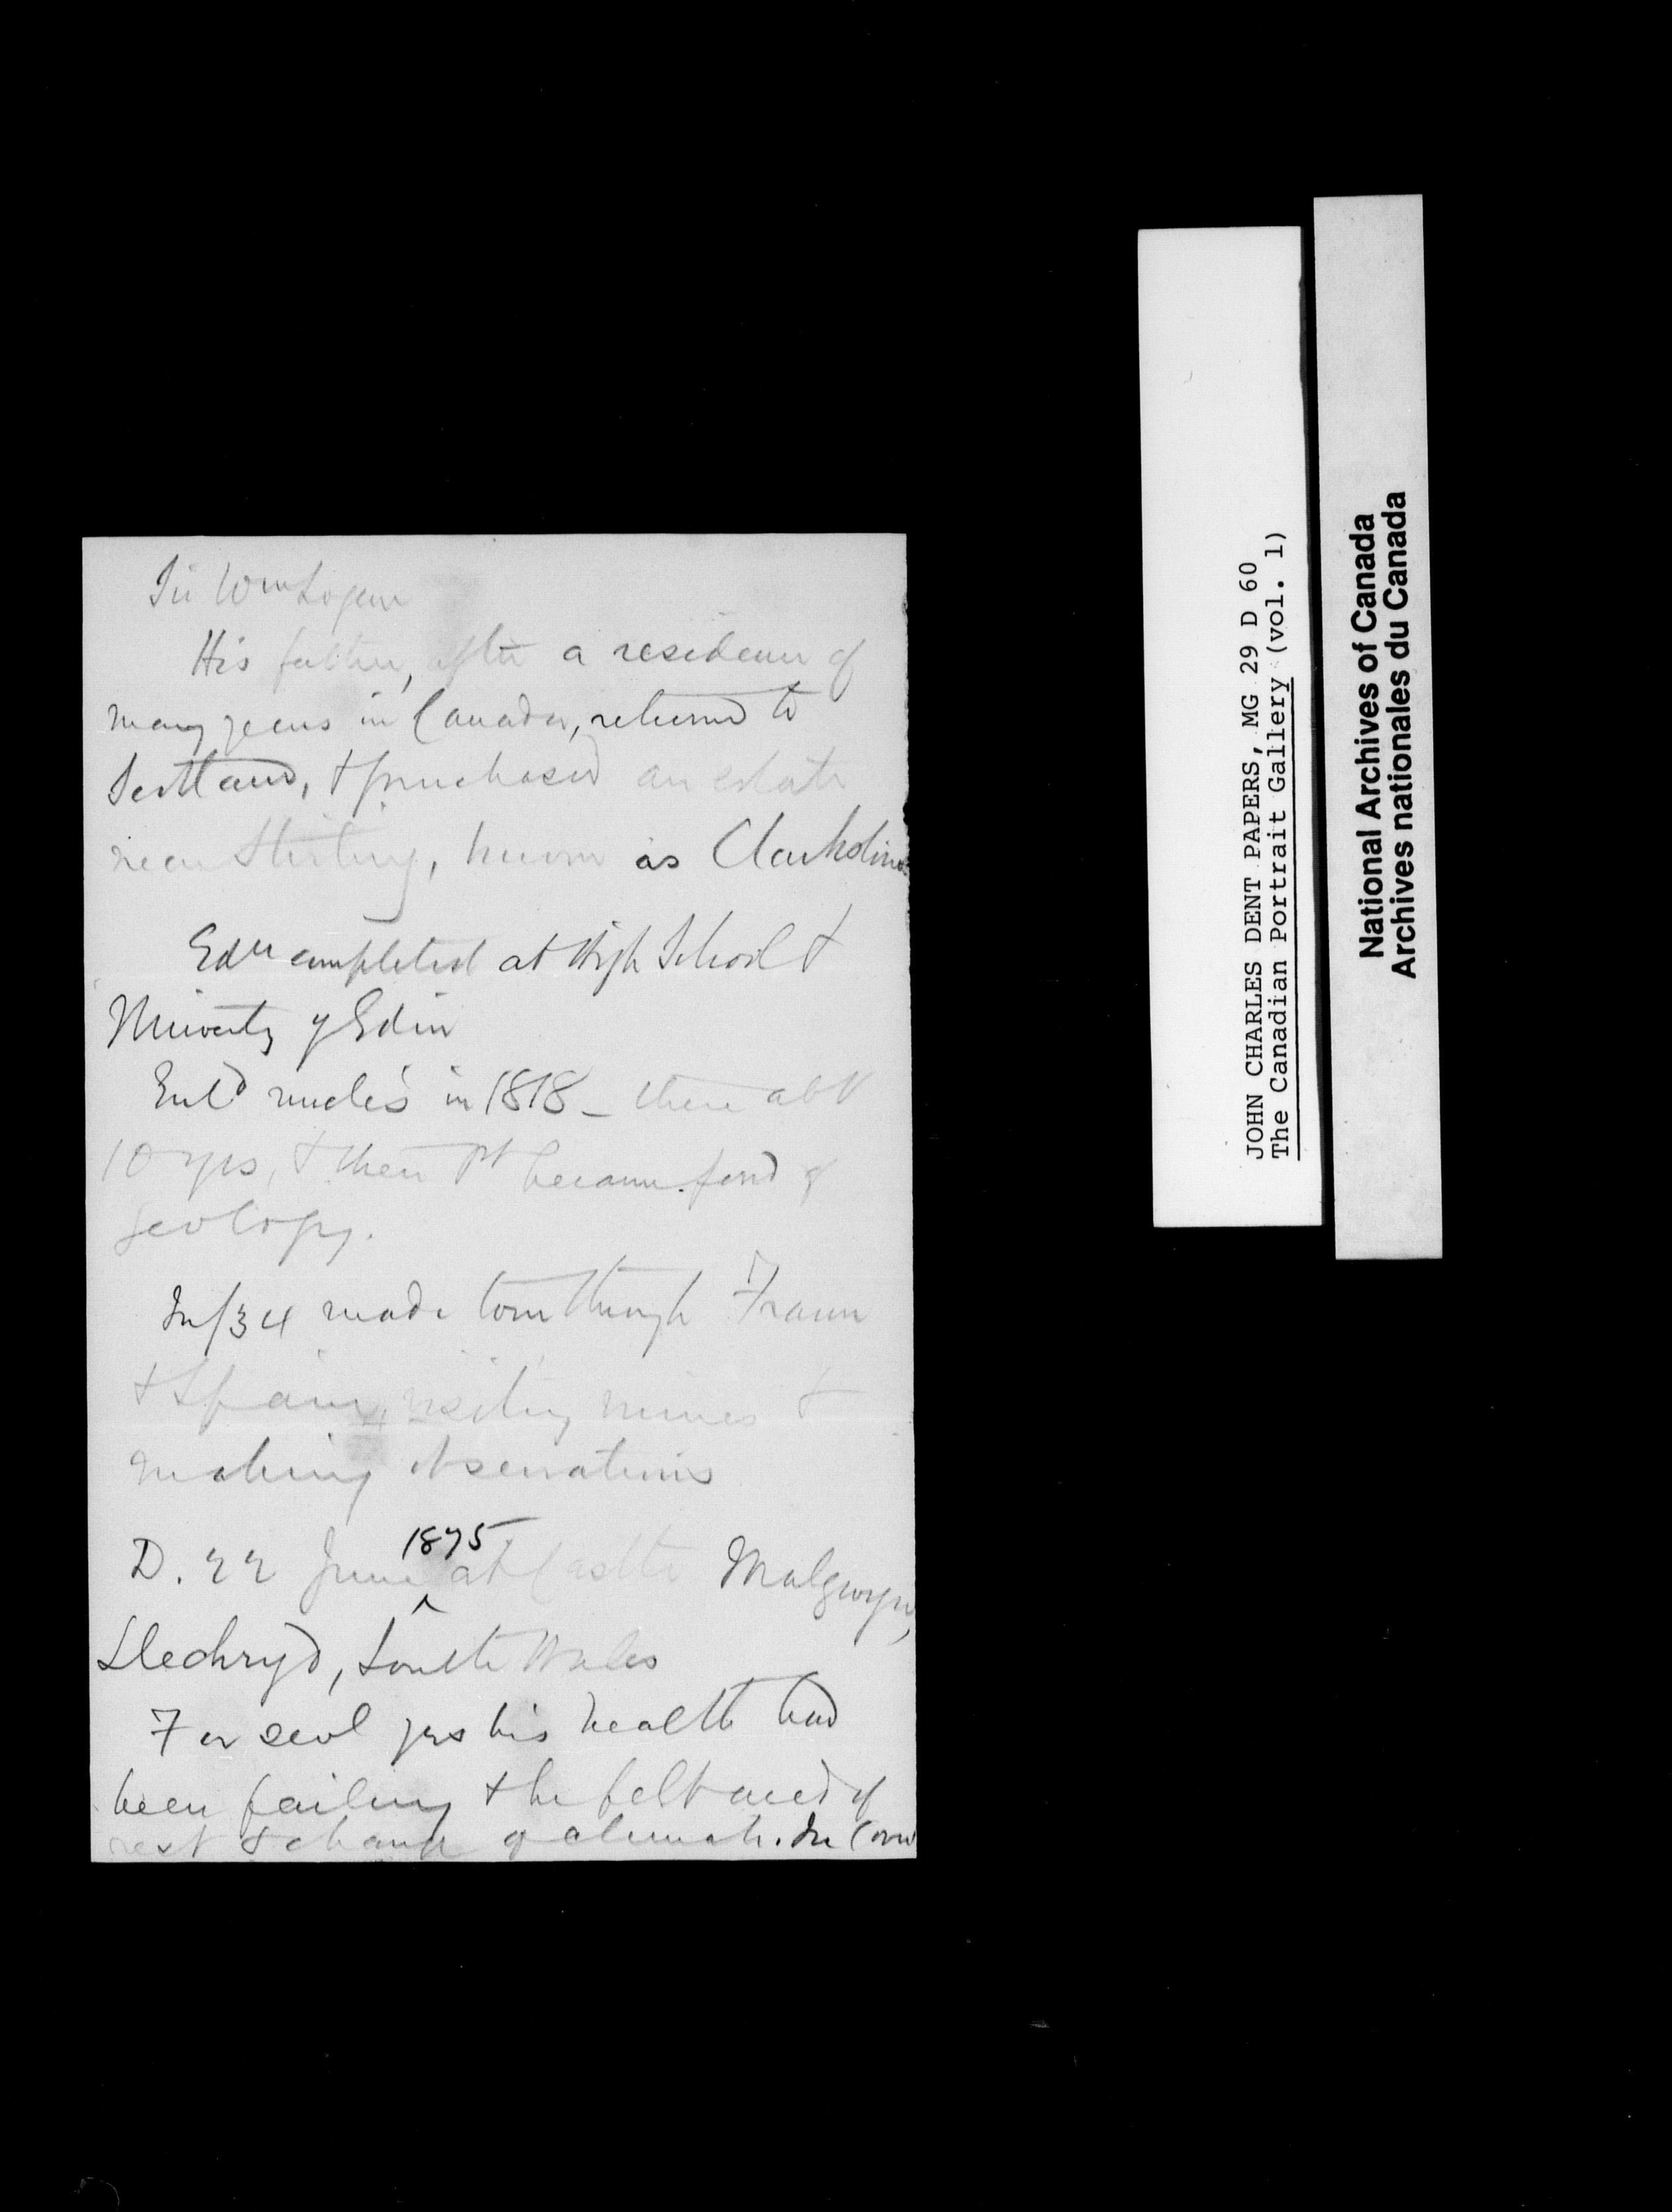 Sir Wm Logan
His father, after a residence of
many years in Canada, returned to
Scotland, & purchased an estate
near Stirling, known as Clarkstone
Edn completed at High School &
University of Edin
Entd uncle's in 1818 - there abt
10 yrs, & then 1st became fond of
geology.
In /34 made tour through France
& Spain, visiting mines &
making observations
1875
D. 22 June ^ at Castle Malgwyn,
Llechryd, South Wales
For sevl yrs his health had
been failing & he felt need of
rest & change of climate. In
JOHN CHARLES DENT PAPERS, MG 29 D 60
The Canadian Portrait Gallery (vol. 1)
National Archives of Canada
Archives nationales du Canada